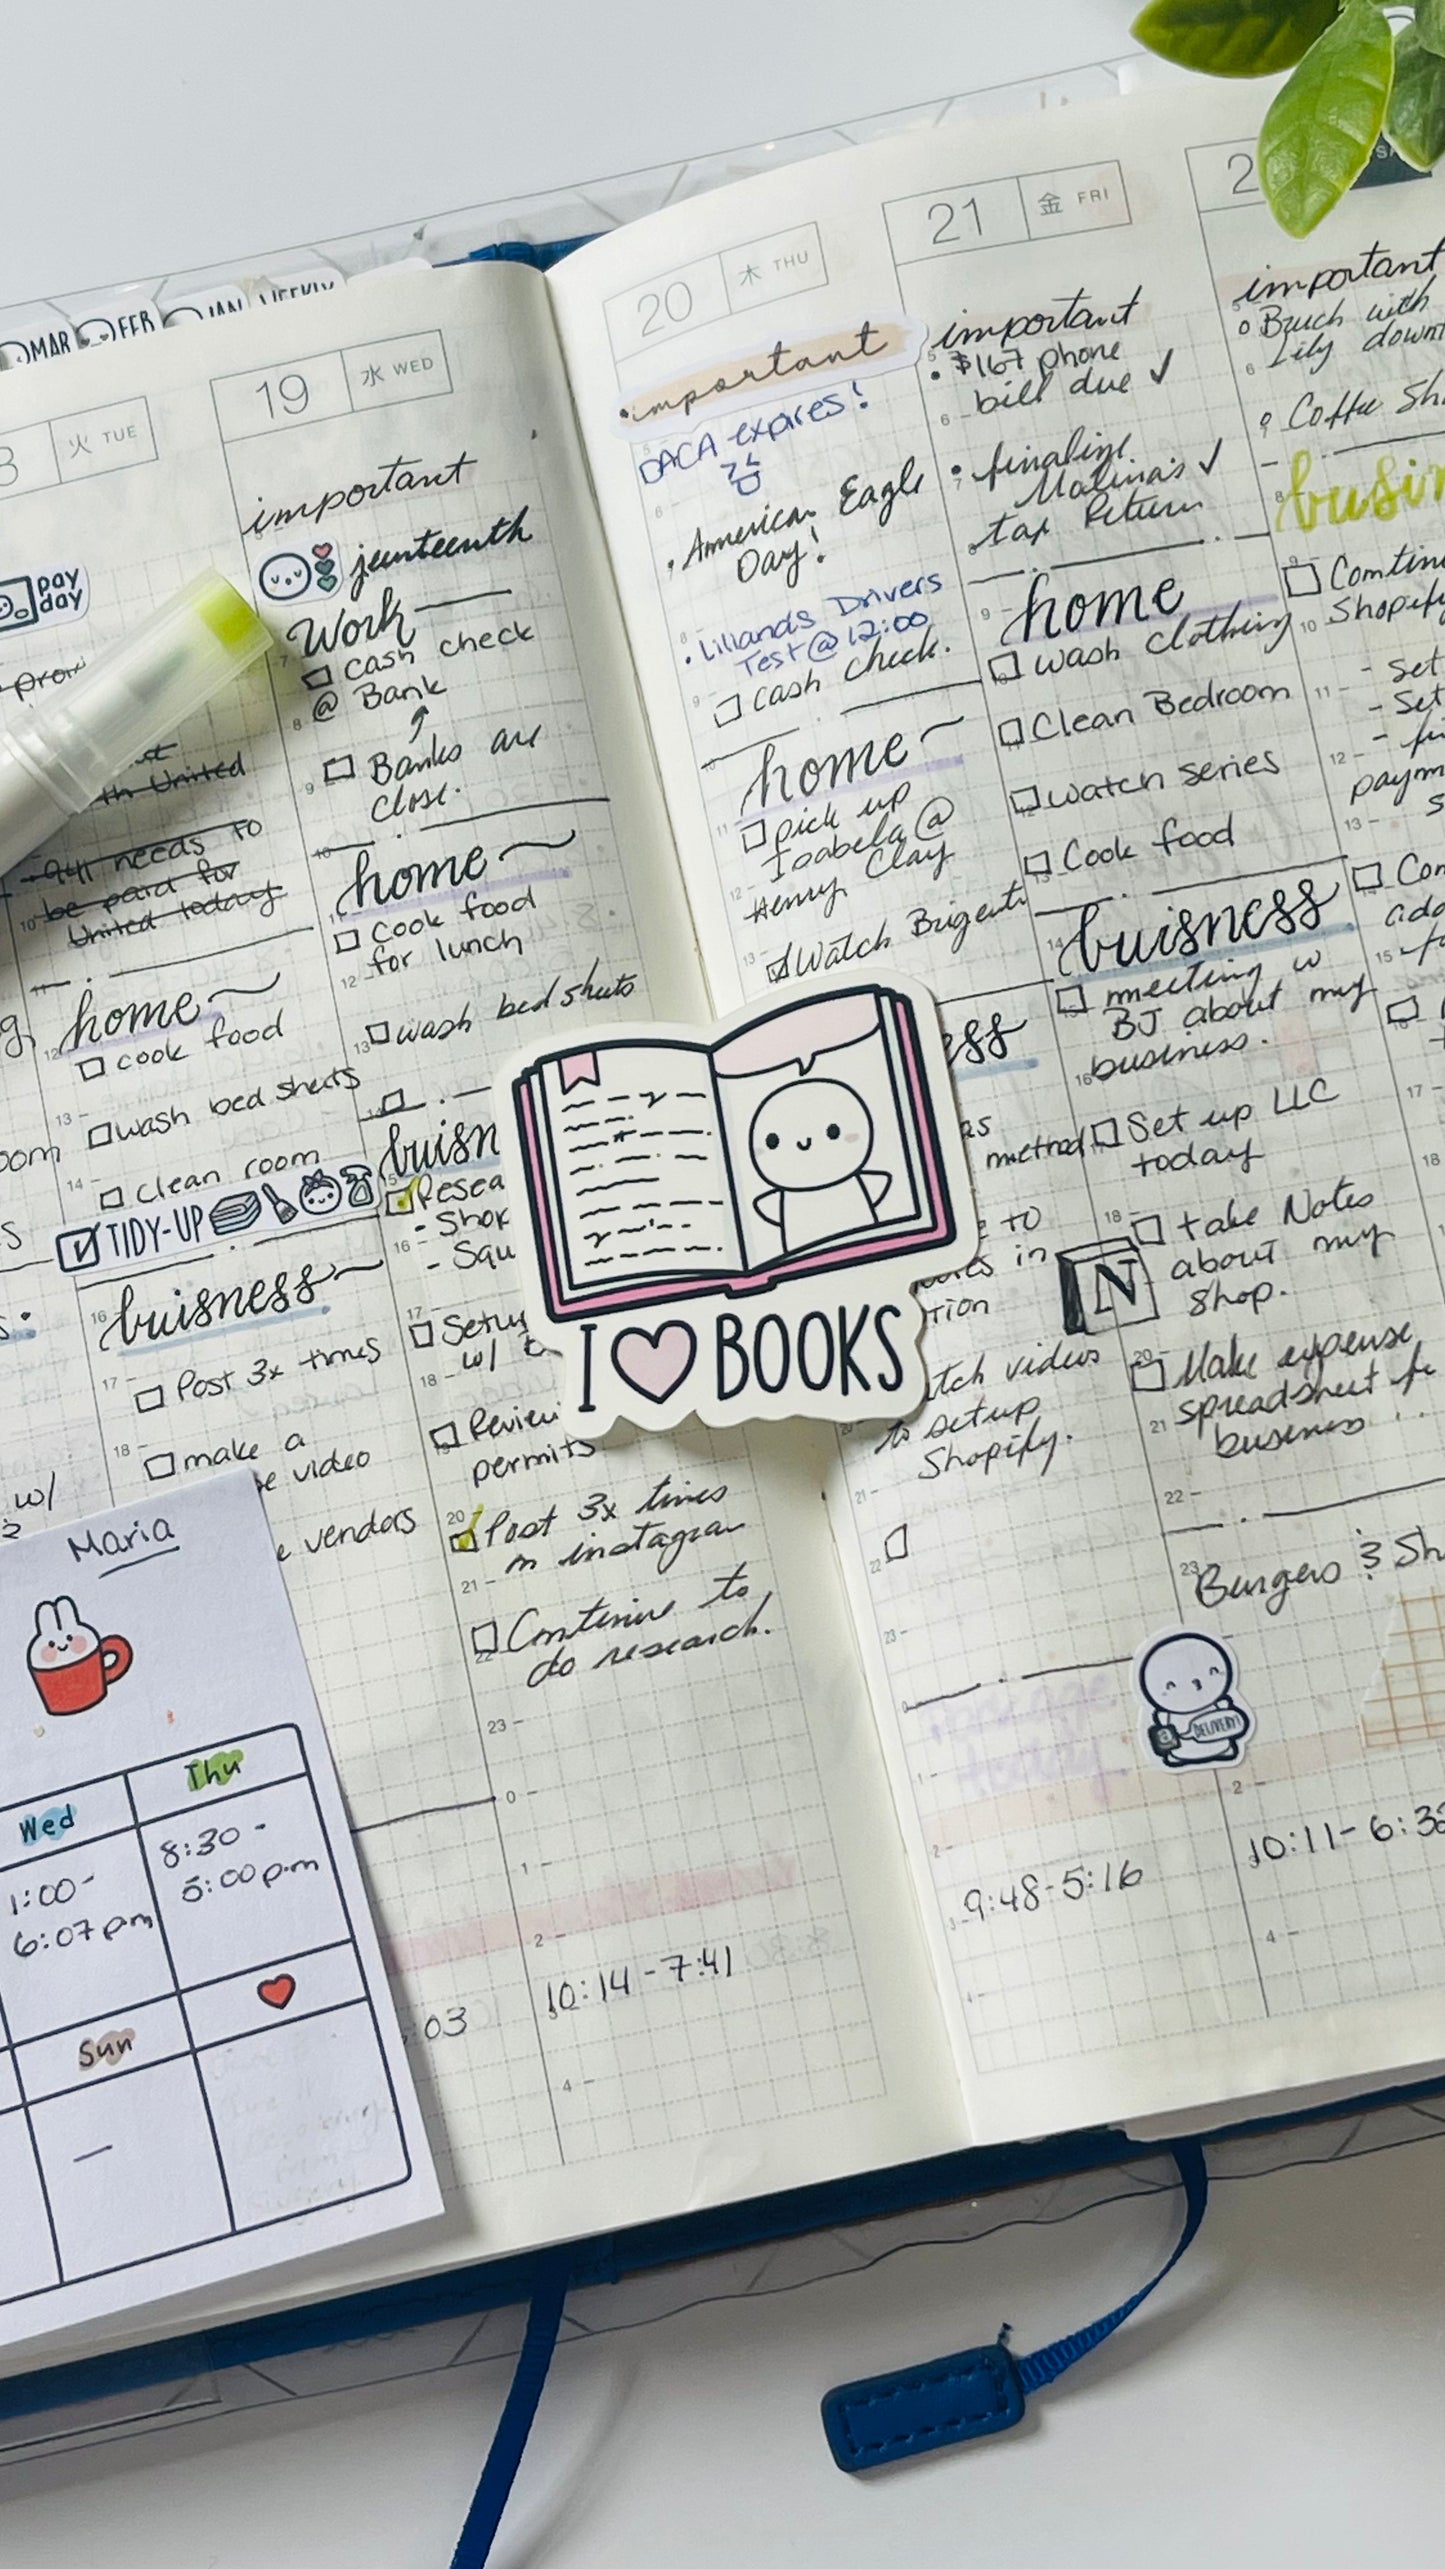 MAR
FEB
JAN
WEEKLY
火 TUE
pay
day
th United
941 needs to
be paid for
United today
home
cook food
wash bed sheets
clean room
TIDY-UP
buisness
Post 3x times
make a
video
vendors
w/
19
水 WED
important
jeunteenth
Work
cash check
@ Bank
Banks are
close.
home
Cook food
for lunch
wash bed sheets
buisn
Resea
- Shop
- Squ
Setup
w/
Review
permits
Post 3x times
on instagram
Continue to
do research.
10:14-7:41
03
20
木 THU
important
DACA expires!
American Eagle
Day!
Lilianas Drivers
Test @ 12:00
cash check.
home
pick up
Isabela @
Henry Clay
Watch Brigerti
ess
as
method
to
in
tion
tch videos
to setup
Shopify.
9:48-5:16
21
金 FRI
important
$167 phone
bill due ✓
finalize
Malina's ✓
tax Return
home
wash clothing
Clean Bedroom
watch series
Cook food
buisness
meeting w
BJ about my
business.
Set up LLC
today
N
take Notes
about my
shop.
Make expense
spreadsheet fo
business...
Burgers & Sh
DELIVERY!
10:11-6:38
2
important
Bruch with
Lily down
Coffee Sh
busin
Contin
Shopify
- set
- Set
- fi
paym
s
Con
ado
fo
I ♡ BOOKS
Maria
Wed
Thu
1:00-
6:07 pm
8:30-
5:00 p.m
Sun
—